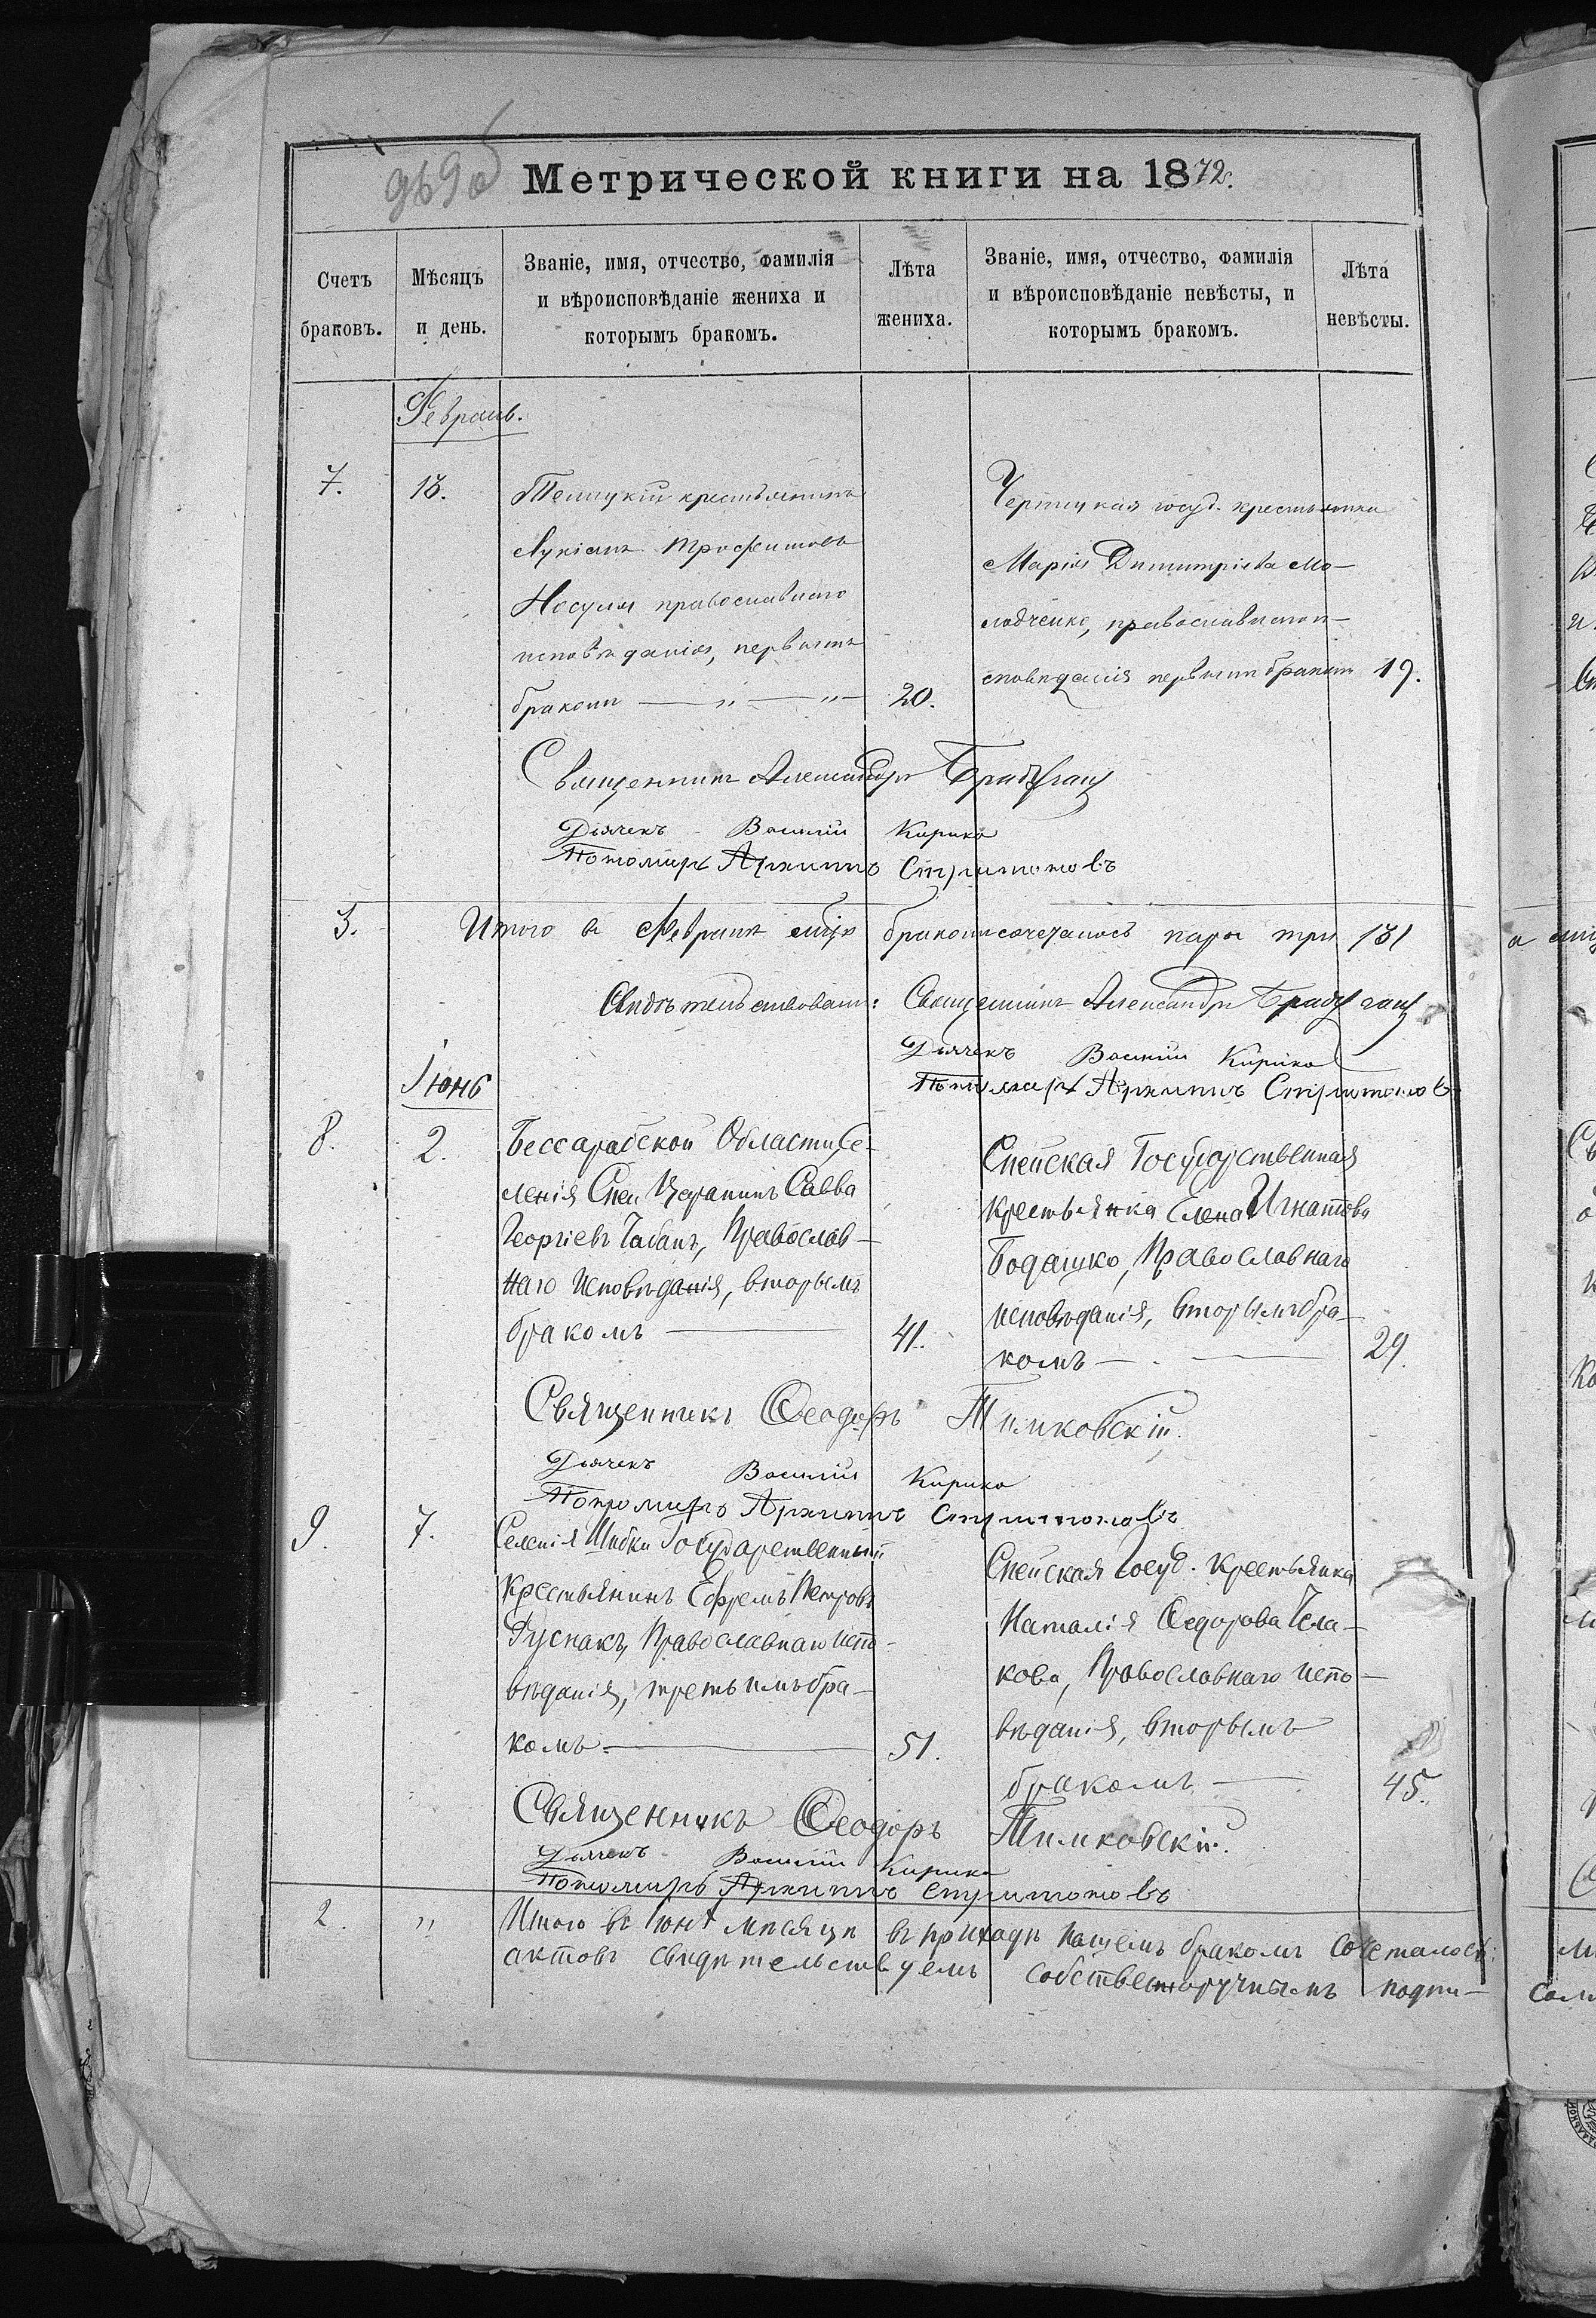 969 об
Метрической книги на 1872.
Счетъ браковъ.
Мѣсяцъ и день.
Званіе, имя, отчество, фамилія и вѣроисповѣданіе жениха и которымъ бракомъ.
Лѣта жениха.
Званіе, имя, отчество, фамилія и вѣроисповѣданіе невѣсты, и которымъ бракомъ.
Лѣта невѣсты.
Февраль.
7.
13.
крестьянинъ
Лукіанъ Трофимовъ
Носуля православнаго
исповѣданія, первымъ
бракомъ — „ — „ —
20.
госуд. крестьянка
Марія Димитріева Мо-
лодченко, православнаго и-
сповѣданія первымъ бракомъ
19.
Священникъ Александръ
Дьячекъ Василій Кирика
Пономарь Архипъ
3.
Итого въ Февралѣ м-цѣ бракомъ сочеталось пары три /3/
Свидѣтельствовали: Священникъ Александръ
Дьячекъ Василій Кирика
Пономарь Архипъ
Іюнь
8.
2.
Бессарабской Области Се-
ленія Спеи Царанинъ Савва
Георгіевъ Чабанъ, Православ-
наго Исповѣданія, вторымъ
бракомъ —
41.
Спейская Государственная
крестьянка Елена Игнатова
Бодашко, Православнаго
исповѣданія, вторымъ бра-
комъ — . —
29.
Священникъ Ѳеодоръ Тимковскій.
Дьячекъ Василій Кирика
Пономарь Архипъ
9.
7.
Селенія Шибки Государственный
Крестьянинъ Ефремъ Петровъ
Руснакъ, Православнаго Испо-
вѣданія, третьимъ бра-
комъ. —
51.
Спейская Госуд. Крестьянка
Наталія Ѳедорова Чела-
кова, Православнаго Испо-
вѣданія, вторымъ
бракомъ —
45.
Священникъ Ѳеодоръ Тимковскій.
Дьячекъ Василій Кирика
Пономарь Архипъ
2.
„
Итого въ Іюнѣ мѣсяцѣ въ приходѣ нашемъ бракомъ сочеталось:
актовъ свидѣтельствуемъ собственоручнымъ подпи-